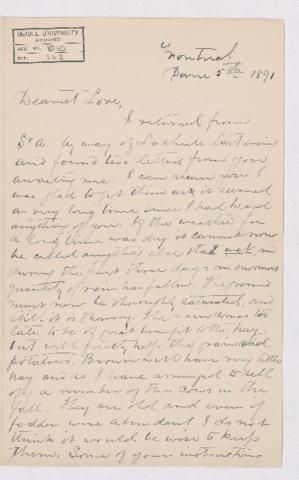 McGILL UNIVERSITY
ARCHIVES
ACC. NO. 1010
REF. 143
Montreal
June 5th 1891
Dearest Love,
I returned from
St A. by way of Lachute last evening
and found two letters from you
awaiting me. I can assure you I
was glad to get them as it seemed
a very long time since I had heard
anything of you. If the weather for
a long time was dry it cannot now
be called anything else than wet, and
during the past three days an enormous
quantity of rain has fallen. The ground
must now be thoroughly saturated, and
still it is raining. The rain comes too
late to be of great benefit to the hay,
but will greatly help the grain and
potatoes. Brown will have very little
hay and so I have arranged to sell
off a number of the cows in the
fall. They are old and even if
fodder were abundant I do not
think it would be wise to keep
them. Some of your instructions